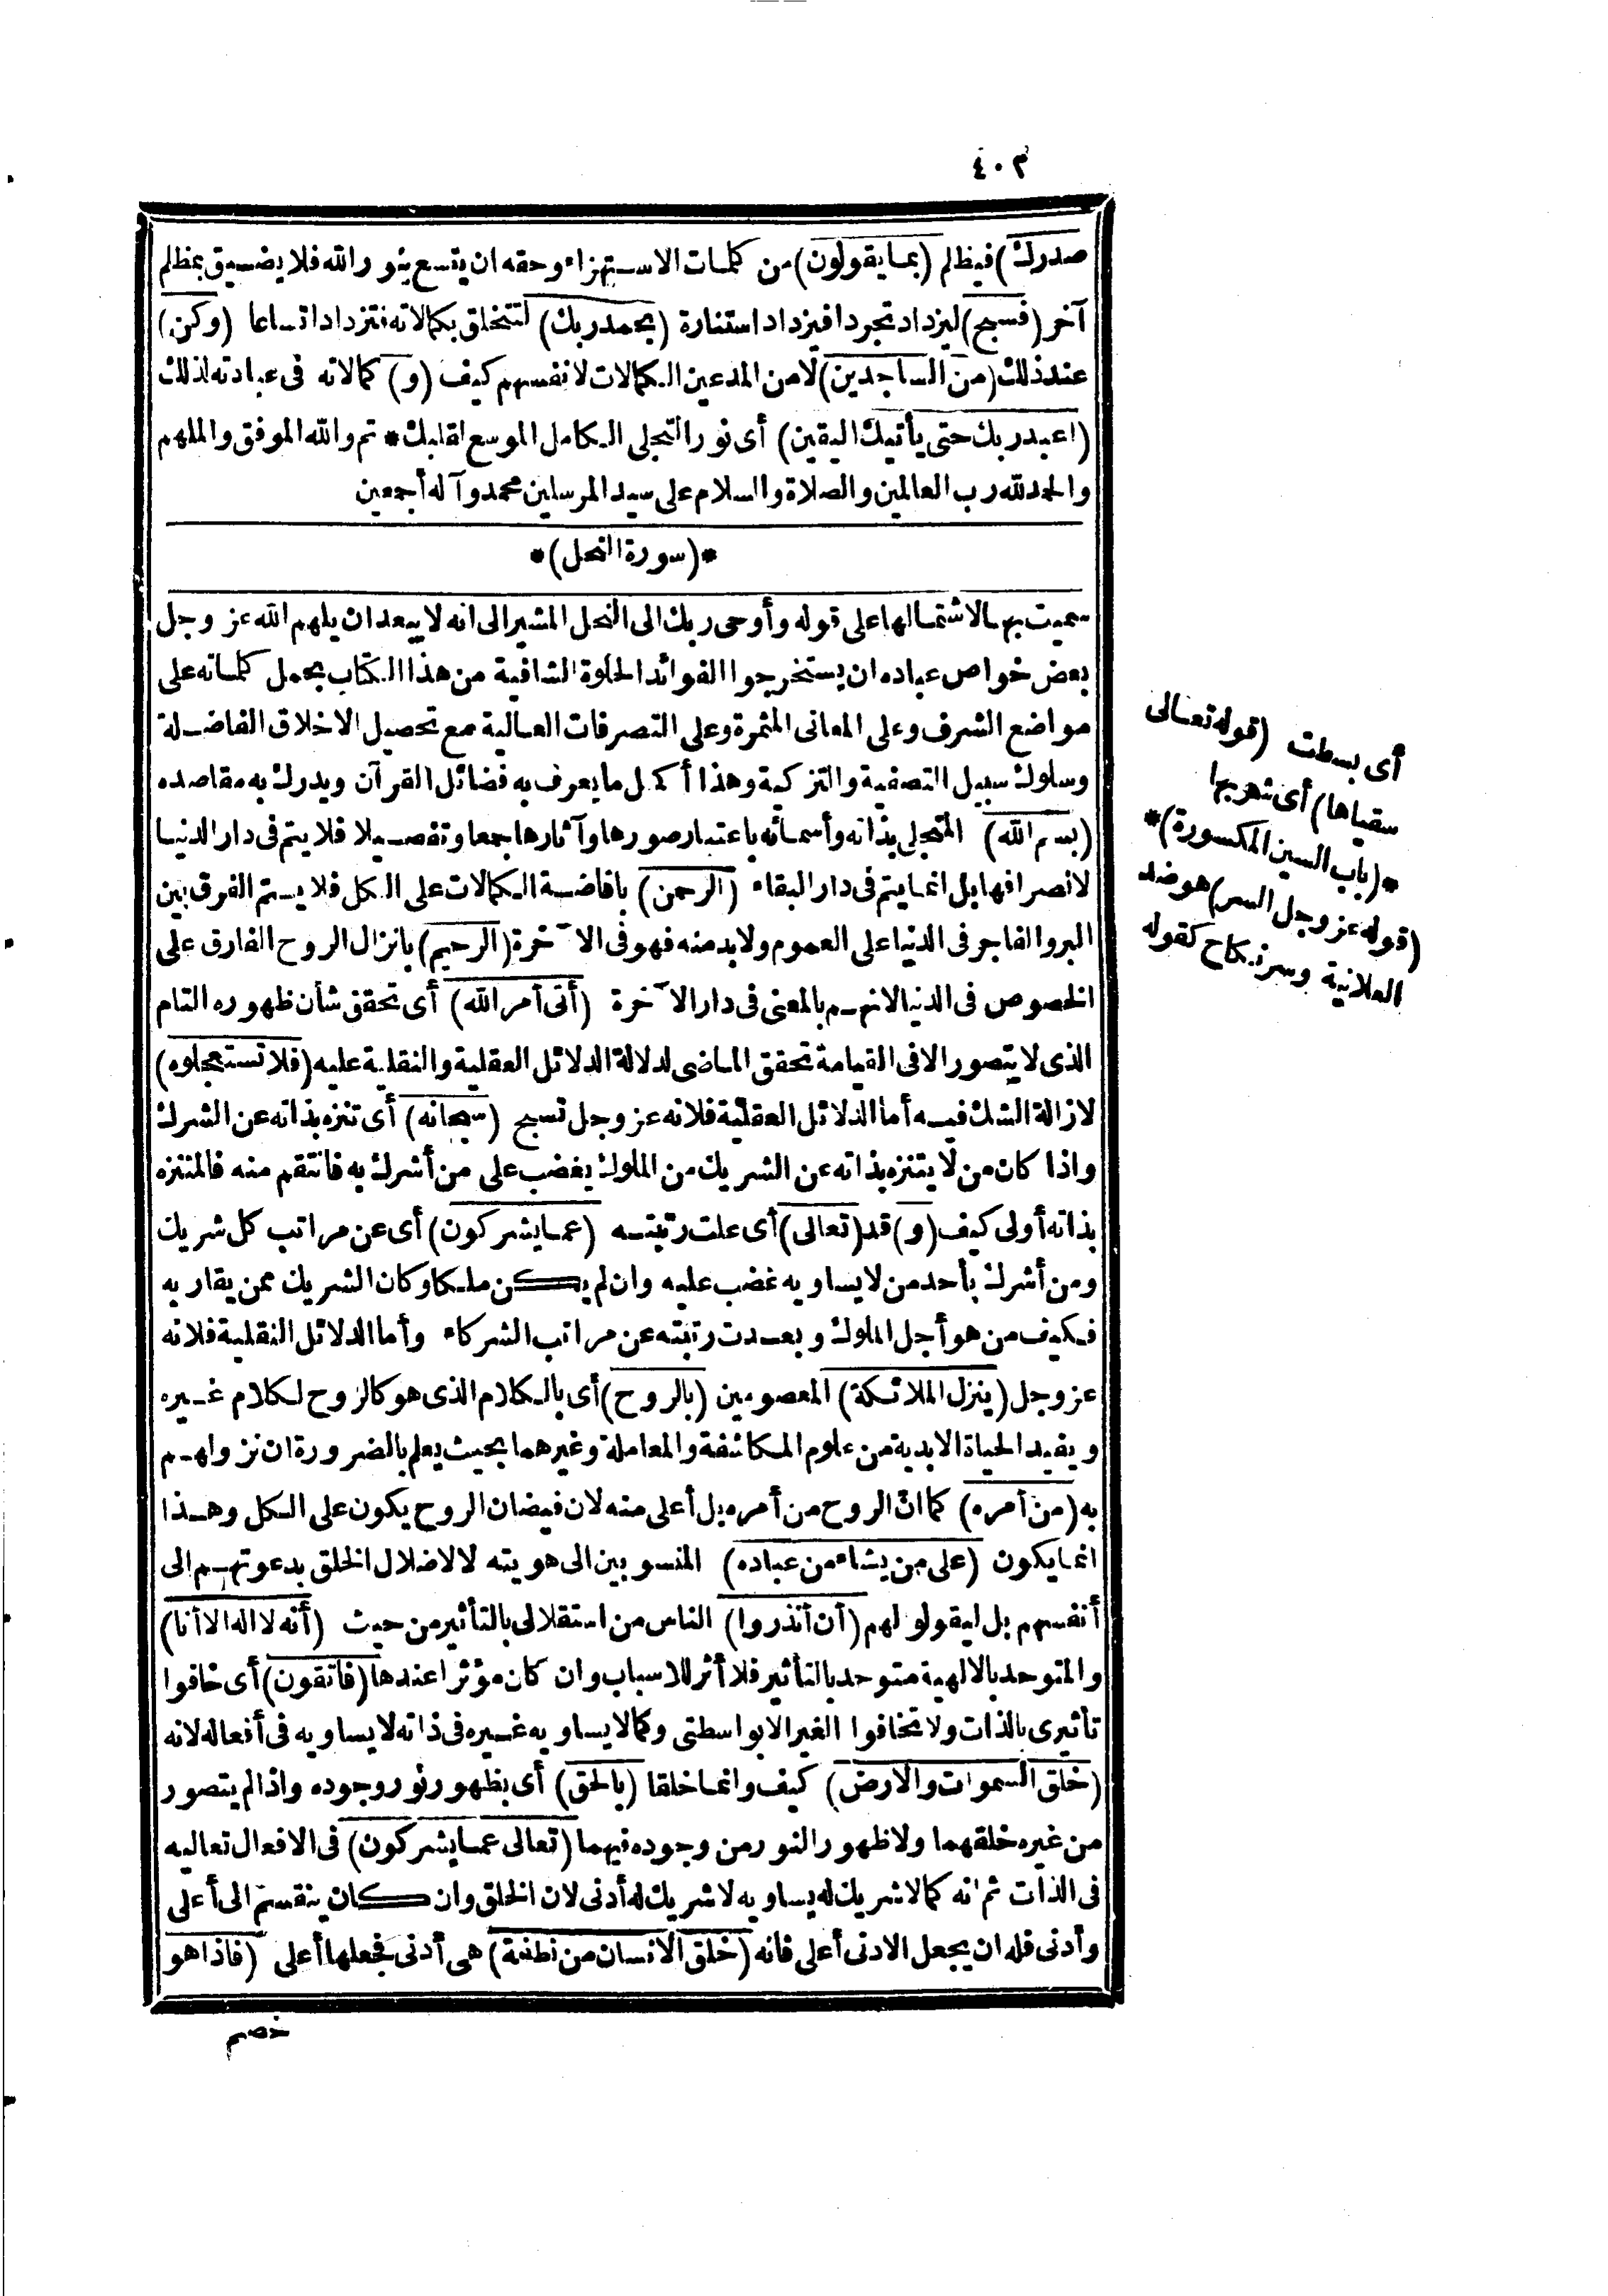 ٤٠٣
صدرك) فيظلم (بما يقولون) من كلمات الاستهزاء وحقه ان يتسع بنور الله فلا يضيق بمظلم
آخر (فسبح) ليزداد تجردا فيزداد استنارة (بحمد ربك) لتتخلق بكمالاته فتزداد اتساعا (وكن)
عند ذلك (من الساجدين) لا من المدعين الكمالات لانفسهم كيف (و) كمالاته فى عبادته لذلك
(اعبد ربك حتى يأتيك اليقين) أى نور التجلى الكامل الموسع لقلبك * تم والله الموفق والملهم
والحمد لله رب العالمين والصلاة والسلام على سيد المرسلين محمد وآله أجمعين
*(سورة النحل)*
سميت بها لاشتمالها على قوله وأوحى ربك الى النحل المشير الى انه لا يبعد ان يلهم الله عز وجل
بعض خواص عباده ان يستخرجوا الفوائد الحلوة الشافية من هذا الكتاب بحمل كلماته على
مواضع الشرف وعلى المعانى المثمرة وعلى التصرفات العالية مع تحصيل الاخلاق الفاضلة
وسلوك سبيل التصفية والتزكية وهذا أكمل ما يعرف به فضائل القرآن ويدرك به مقاصده
(بسم الله) المتجلى بذاته وأسمائه باعتبار صورها وآثارها جمعا وتفصيلا فلا يتم فى دار الدنيا
لانصرافها بل انما يتم فى دار البقاء (الرحمن) بافاضة الكمالات على الكل فلا يستتم الفرق بين
البر والفاجر فى الدنيا على العموم ولا بد منه فهو فى الآخرة (الرحيم) بانزال الروح الفارق على
الخصوص فى الدنيا لانهم بالمعنى فى دار الآخرة (أتى أمر الله) أى تحقق شأن ظهوره التام
الذى لا يتصور الا فى القيامة تحقق الماضى لدلالة الدلائل العقلية والنقلية عليه (فلا تستعجلوه)
لازالة الشك فيه أما الدلائل العقلية فلانه عز وجل تسبح (سبحانه) أى تنزه بذاته عن الشرك
واذا كان من لا يتنزه بذاته عن الشريك من الملوك يغضب على من أشرك به فانتقم منه فالمتنزه
بذاته أولى كيف (و) قد (تعالى) أى علت رتبته (عما يشركون) أى عن مراتب كل شريك
ومن أشرك بأحد من لا يساويه غضب عليه وان لم يكن ملكا وكان الشريك ممن يقاربه
فكيف من هو أجل الملوك وبعدت رتبته عن مراتب الشركاء وأما الدلائل النقلية فلانه
عز وجل (ينزل الملائكة) المعصومين (بالروح) أى بالكلام الذى هو كالروح لكلام غيره
ويفيد الحياة الابدية من علوم المكاشفة والمعاملة وغيرهما بحيث يعلم بالضرورة ان نزولهم
به (من أمره) كما ان الروح من أمره بل أعلى منه لان فيضان الروح يكون على الكل وهذا
انما يكون (على من يشاء من عباده) المنسوبين الى هويته لا لاضلال الخلق بدعوتهم الى
أنفسهم بل ليقولو لهم (أن أنذروا) الناس من استقلالى بالتأثير من حيث (أنه لا اله الا أنا)
والمتوحد بالالهية متوحد بالتأثير فلا أثر للاسباب وان كان مؤثرا عندها (فاتقون) أى خافوا
تأثيرى بالذات ولا تخافوا الغير الا بواسطتى وكما لا يساويه غيره فى ذاته لا يساويه فى أفعاله لانه
(خلق السموات والارض) كيف وانما خلقا (بالحق) أى بظهور نور وجوده واذا لم يتصور
من غيره خلقهما ولا ظهور النور من وجوده فيهما (تعالى عما يشركون) فى الافعال تعاليه
فى الذات ثم انه كما لا شريك له يساويه لا شريك له أدنى لان الخلق وان كان ينقسم الى أعلى
وأدنى فله ان يجعل الادنى أعلى فانه (خلق الانسان من نطفة) هى أدنى فجعلها أعلى (فاذا هو
خصم
أى بسطت (قوله تعالى
سقياها) أى شربها
*(باب السين المكسورة)*
(قوله عز وجل السر) هو ضد
العلانية وسر نكاح كقوله